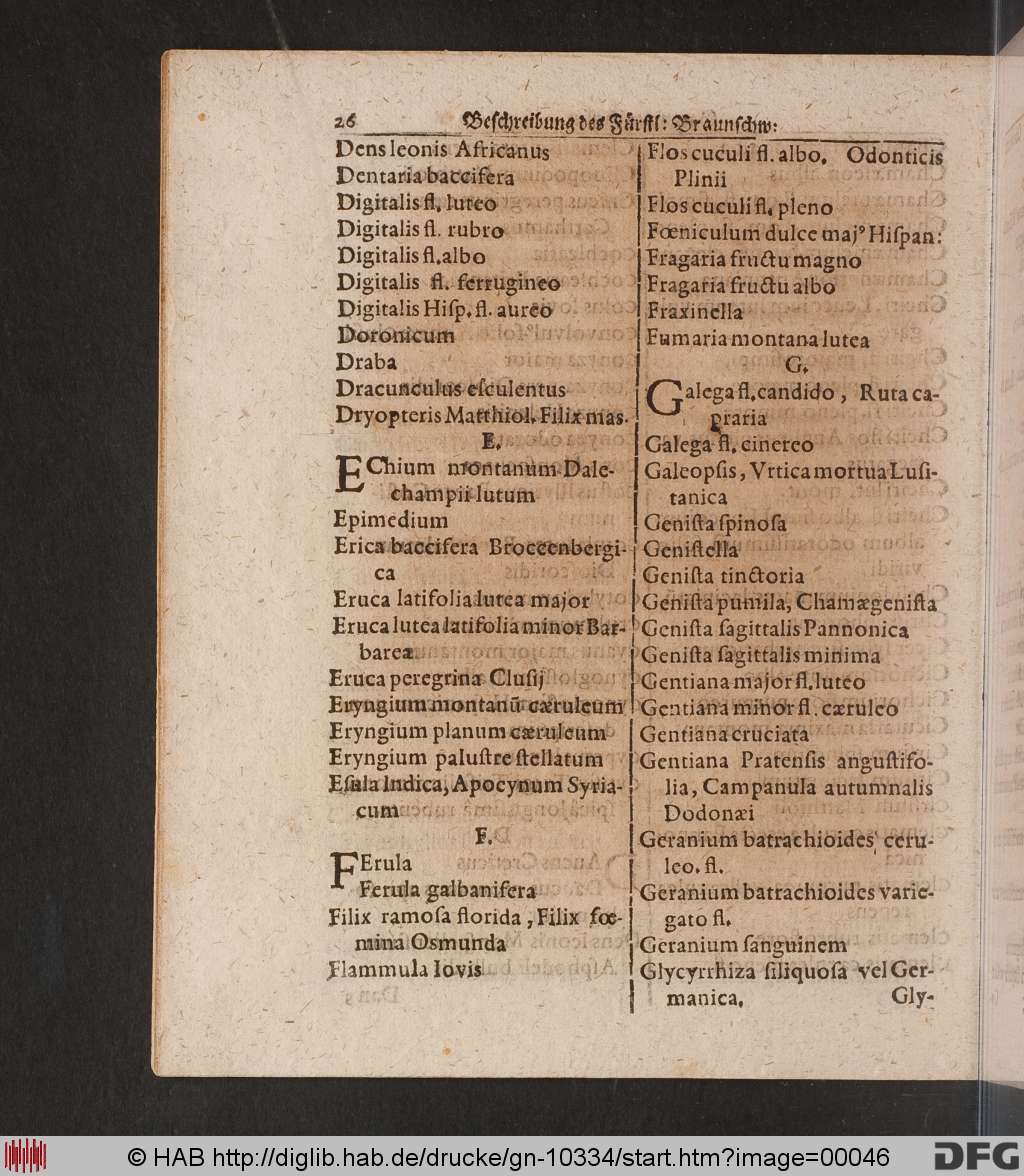 26 Beſchreibung des Fürſtl: Braunſchw:
Dens leonis Africanus
Dentaria baccifera
Digitalis fl. luteo
Digitalis fl. rubro
Digitalis fl. albo
Digitalis fl. ferrugineo
Digitalis Hiſp. fl. aureo
Doronicum
Draba
Dracunculus eſculentus
Dryopteris Matthiol. Filix mas.
E.
EChium montanum Dale-
champii lutum
Epimedium
Erica baccifera Broccenbergi-
ca
Eruca latifolia lutea major
Eruca lutea latifolia minor Bar-
barea
Eruca peregrina Cluſij
Eryngium montanũ cæruleum
Eryngium planum cæruleum
Eryngium paluſtre ſtellatum
Eſula Indica, Apocynum Syria-
cum
F.
FErula
Ferula galbanifera
Filix ramoſa florida, Filix fœ-
mina Osmunda
Flammula Iovis
Flos cuculi fl. albo. Odonticis
Plinii
Flos cuculi fl. pleno
Fœniculum dulce majꝰ Hiſpan:
Fragaria fructu magno
Fragaria fructu albo
Fraxinella
Fumaria montana lutea
G.
Galega fl. candido, Ruta ca-
praria
Galega fl. cinereo
Galeopſis, Vrtica mortua Luſi-
tanica
Geniſta ſpinoſa
Geniſtella
Geniſta tinctoria
Geniſta pumila, Chamægeniſta
Geniſta ſagittalis Pannonica
Geniſta ſagittalis minima
Gentiana major fl. luteo
Gentiana minor fl. cæruleo
Gentiana cruciata
Gentiana Pratenſis anguſtifo-
lia, Campanula autumnalis
Dodonæi
Geranium batrachioides ceru-
leo. fl.
Geranium batrachioides varie-
gato fl.
Geranium ſanguinem
Glycyrrhiza ſiliquoſa vel Ger-
manica. Gly-
© HAB http://diglib.hab.de/drucke/gn-10334/start.htm?image=00046
DFG